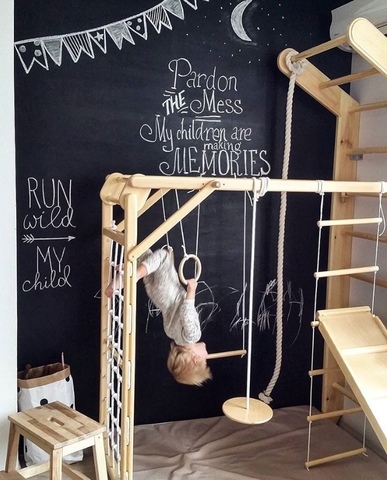 Pardon
THE Mess
My children are
making
MEMORIES
RUN
wild
MY
child